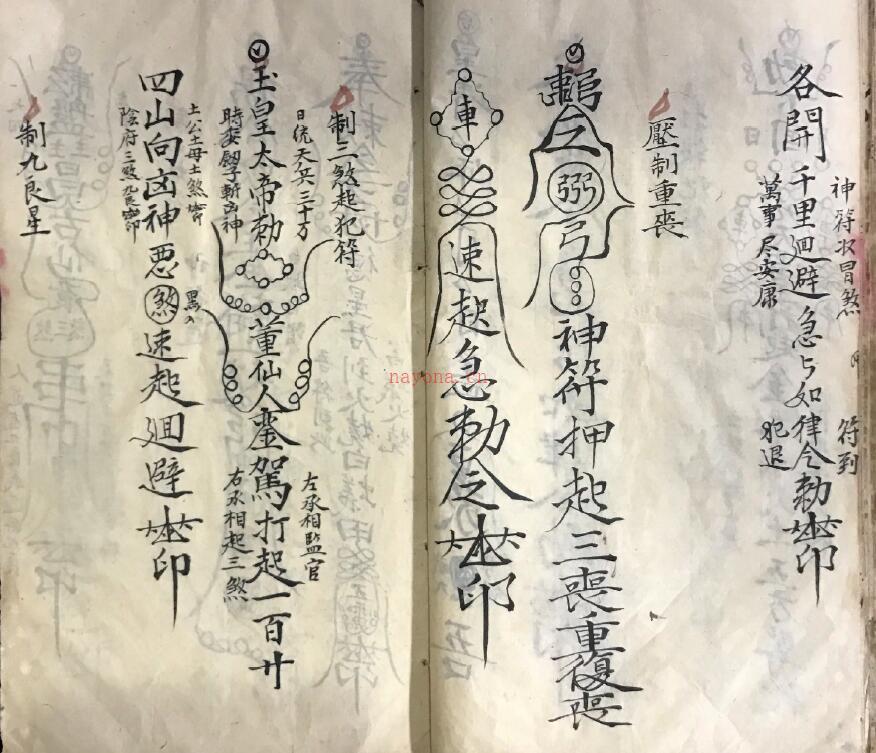 各開千里廻避急急如律令勅
印
神符收冒煞
符到
萬事尽安康
犯退
壓制重喪
神符押起三喪重復喪
車
速起急勅令
印
制三煞起犯符
日統天兵三十万
玉皇太帝勅董仙人鑾駕打起一百廿
左承相監官
右承相起三煞
四山向凶神惡煞速起廻避
印
土公土母土煞
制九良星
nayona.cn